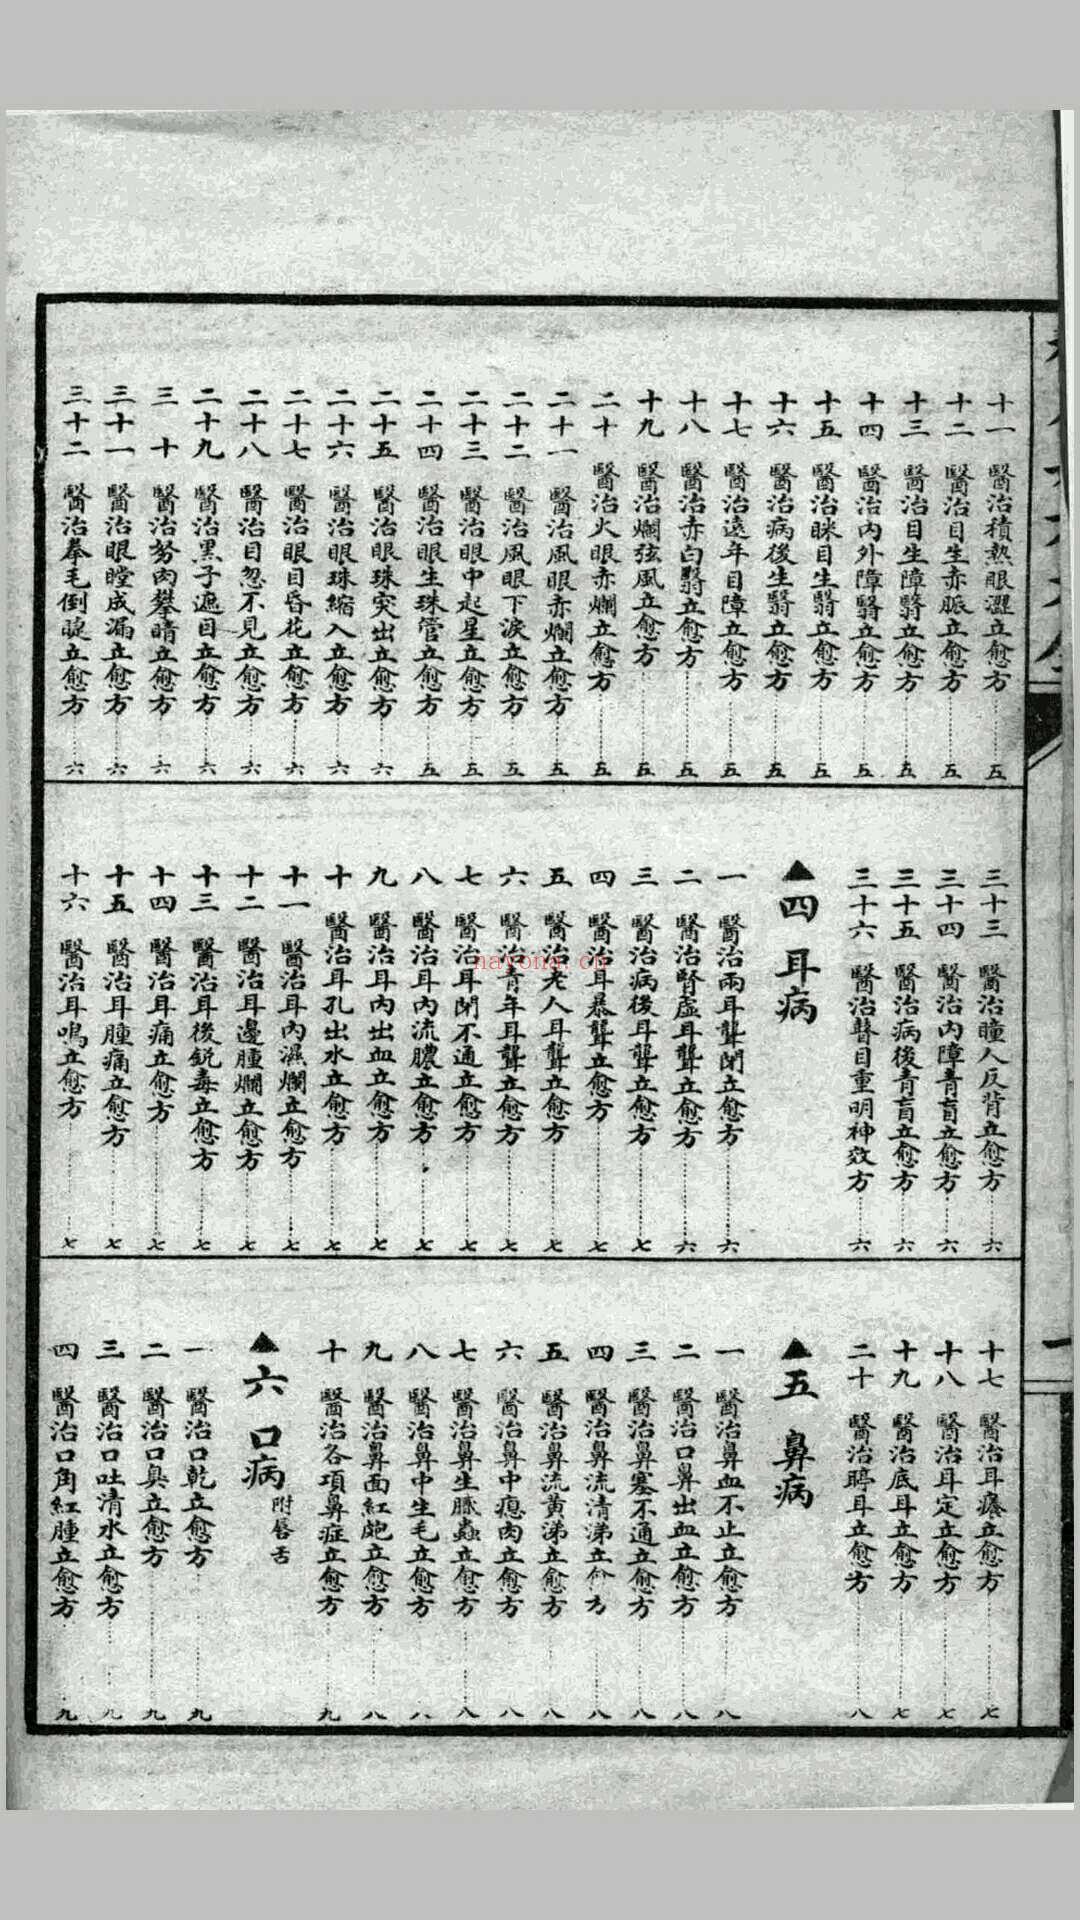 十一 醫治積熱眼澀立愈方 五
十二 醫治目生赤脈立愈方 五
十三 醫治目生障翳立愈方 五
十四 醫治內外障翳立愈方 五
十五 醫治眯目生翳立愈方 五
十六 醫治病後生翳立愈方 五
十七 醫治遠年目障立愈方 五
十八 醫治赤白翳立愈方 五
十九 醫治爛弦風立愈方 五
二十 醫治火眼赤爛立愈方 五
二十一 醫治風眼赤爛立愈方 五
二十二 醫治風眼下淚立愈方 五
二十三 醫治眼中起星立愈方 五
二十四 醫治眼生珠管立愈方 五
二十五 醫治眼珠突出立愈方 六
二十六 醫治眼珠縮入立愈方 六
二十七 醫治眼目昏花立愈方 六
二十八 醫治目忽不見立愈方 六
二十九 醫治黑子遮目立愈方 六
三十 醫治努肉攀睛立愈方 六
三十一 醫治眼瞠成漏立愈方 六
三十二 醫治拳毛倒睫立愈方 六
三十三 醫治瞳人反背立愈方 六
三十四 醫治內障青盲立愈方 六
三十五 醫治病後青盲立愈方 六
三十六 醫治瞽目重明神效方 六
▲四 耳病
一 醫治兩耳聾閉立愈方 六
二 醫治腎虛耳聾立愈方 六
三 醫治病後耳聾立愈方 七
四 醫治耳暴聾立愈方 七
五 醫治老人耳聾立愈方 七
六 醫治青年耳聾立愈方 七
七 醫治耳閉不通立愈方 七
八 醫治耳內流膿立愈方 七
九 醫治耳內出血立愈方 七
十 醫治耳孔出水立愈方 七
十一 醫治耳內濕爛立愈方 七
十二 醫治耳邊腫爛立愈方 七
十三 醫治耳後銳毒立愈方 七
十四 醫治耳痛立愈方 七
十五 醫治耳腫痛立愈方 七
十六 醫治耳鳴立愈方 七
十七 醫治耳癢立愈方 七
十八 醫治耳定立愈方 七
十九 醫治底耳立愈方 七
二十 醫治聤耳立愈方 八
▲五 鼻病
一 醫治鼻血不止立愈方 八
二 醫治口鼻出血立愈方 八
三 醫治鼻塞不通立愈方 八
四 醫治鼻流清涕立愈方 八
五 醫治鼻流黃涕立愈方 八
六 醫治鼻中瘜肉立愈方 八
七 醫治鼻生䘌蟲立愈方 八
八 醫治鼻中生毛立愈方 八
九 醫治鼻面紅皰立愈方 八
十 醫治各項鼻症立愈方 九
▲六 口病 附唇舌
一 醫治口乾立愈方 九
二 醫治口臭立愈方 九
三 醫治口吐清水立愈方 九
四 醫治口角紅腫立愈方 九
nayona.cn